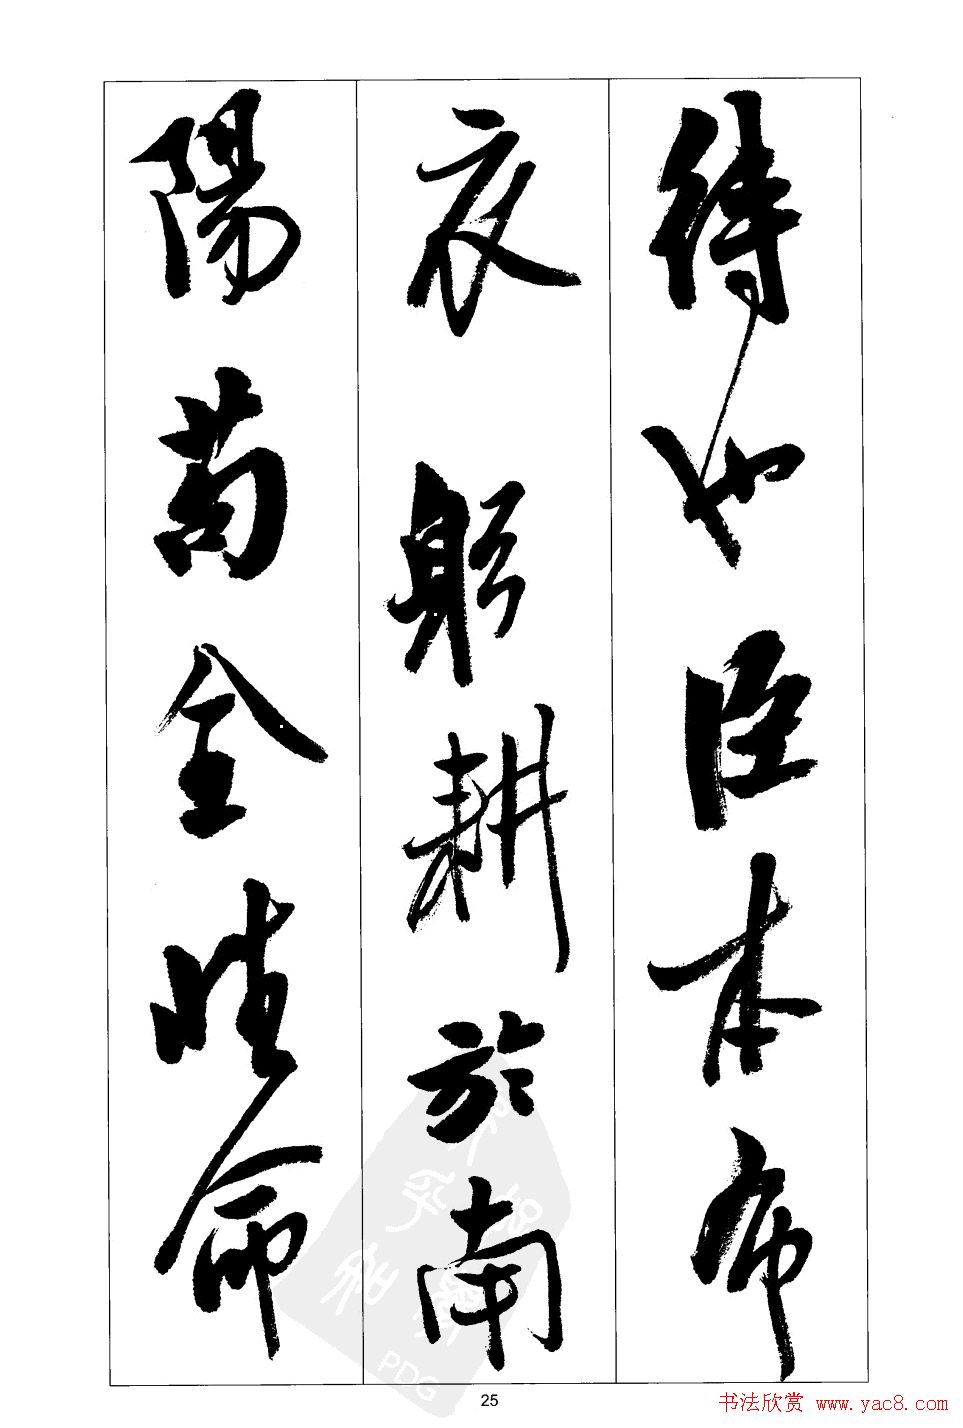 待也臣本布
衣躬耕於南
陽苟全性命
25
PDG
书法欣赏 www.yac8.com